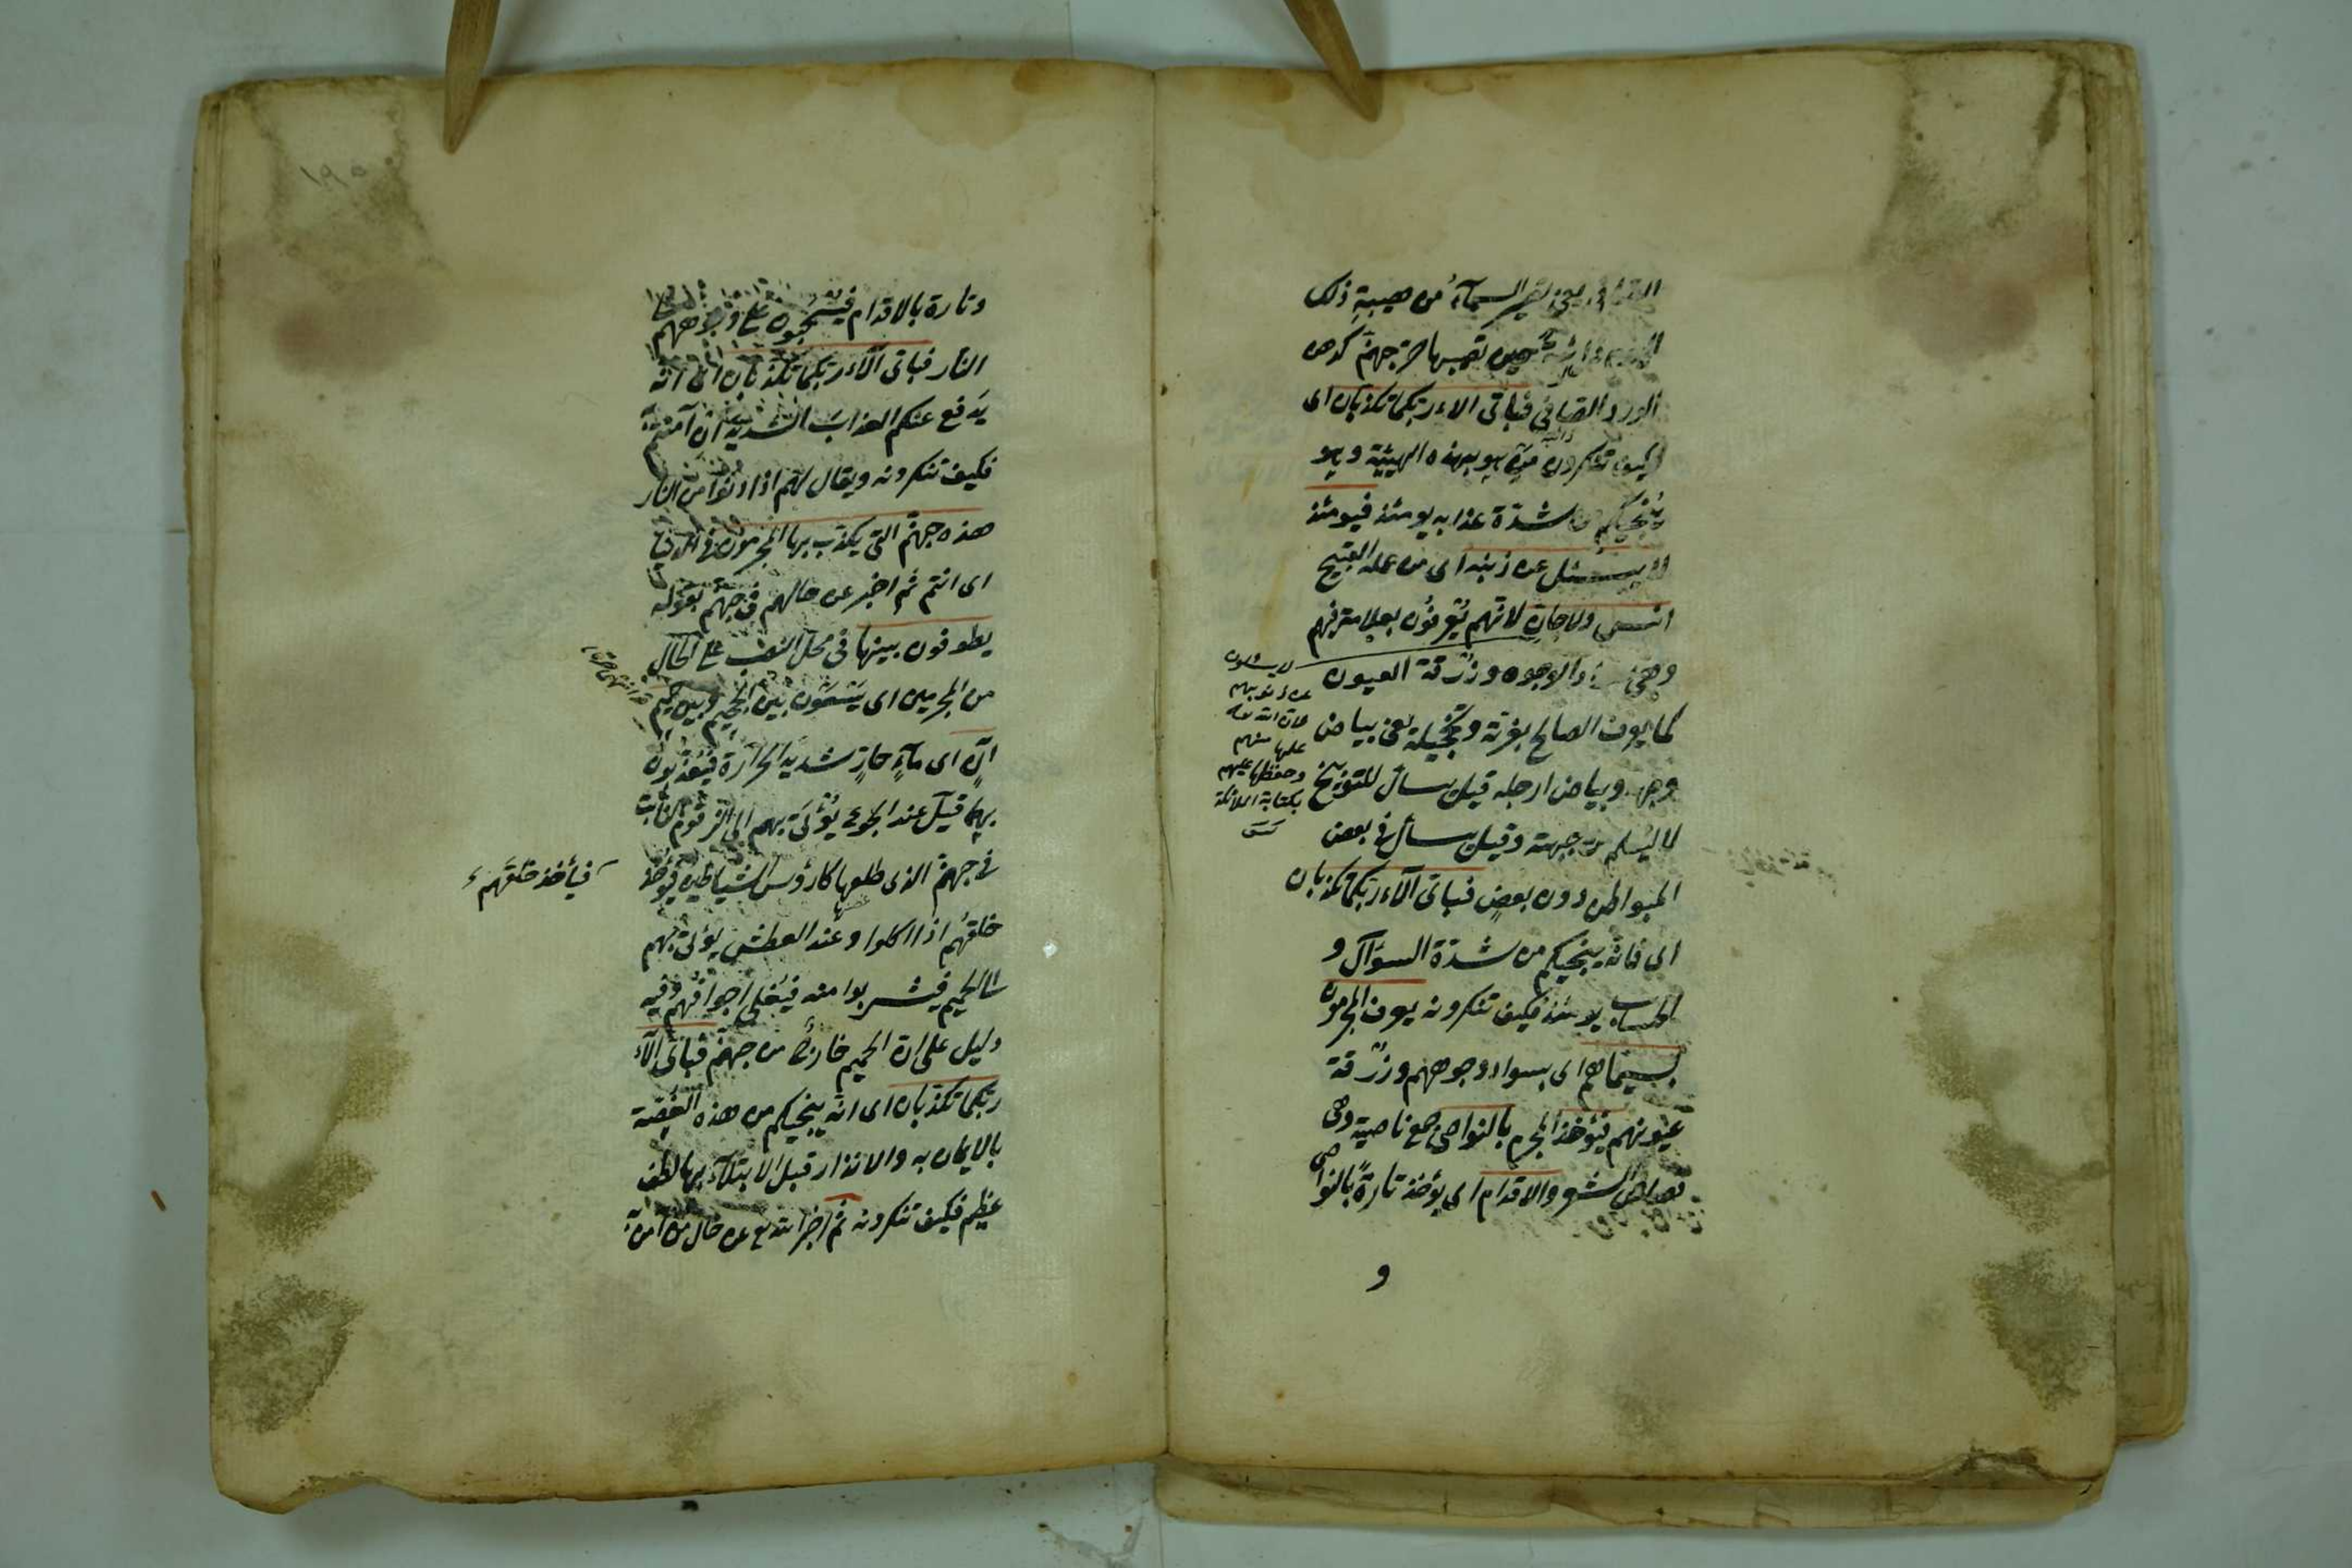 السمآء من هيبة ذلك
حين تصيبها حر جهنم كدهن
الورد الصافى فباى الاء ربكما تكذبان اى
كيف تنكرون من هو بهذه الهيئة وهو
ينجيكم من شدة عذابه يومئذ فيومئذ
لا يسئل عن ذنبه اى من عمله القبيح
انس ولا جان لانهم يُعرفون بعلامتهم
وهى سواد الوجوه وزرقة العيون
كما يعرف الصالح بغرته وتحجيله يعنى بياض
وجهه وبياض ارجله قيل يسأل للتوبيخ
لا ليُعلم من جهته وقيل يسأل فى بعض
المواطن دون بعض فباى آلاء ربكما تكذبان
اى فانه ينجيكم من شدة السؤال و
الحساب يومئذ فكيف تنكرونه يعرف المجرمون
بسيماهم اى بسواد وجوههم وزرقة
عيونهم فيؤخذ المجرم بالنواصى جمع ناصية وهى
الشعر والاقدام اى يؤخذ تارةً بالنواصى
و
لا يسئلون
عن ذنوبهم
فان الله
علمها منهم
وحفظها عليهم
بكتابة الملائكة
١٩٠
وتارة بالاقدام فيسحبون على وجوههم
النار فباى آلاء ربكما تكذبان اى انه
يدفع عنكم العذاب الشديد ان آمنتم به
فكيف تنكرونه ويقال لهم اذا دنوا من النار
هذه جهنم التى يكذب بها المجرمون فى الدنيا
اى انتم ثم اخبر عن حالهم فى جهنم بقوله
يطوفون بينها فى محل النصب على الحال
من المجرمين اى يسعون بين الجحيم وبين حميم
آن اى مآءٍ حارٍ شديد الحرارة فيعذبون
بهما قيل عند الجوع يُؤتى بهم الى الزقوم النابت
فى جهنم الذى طلعها كارؤس الشياطين فيؤخذ
حلقهم اذا اكلوا وعند العطش يؤتى بهم
الى الحميم فيشربوا منه فيُغلى اجوافهم وفيه
دليل على ان الحميم خارج من جهنم فباى آلاء
ربكما تكذبان اى انه ينجيكم من هذه الغصة
بالايمان به والانذار قبل الابتلآء بها لطف
عظيم فكيف تنكرونه ثم اخبر الله تع عن حال من آمن به
فيأخذ حلقهم